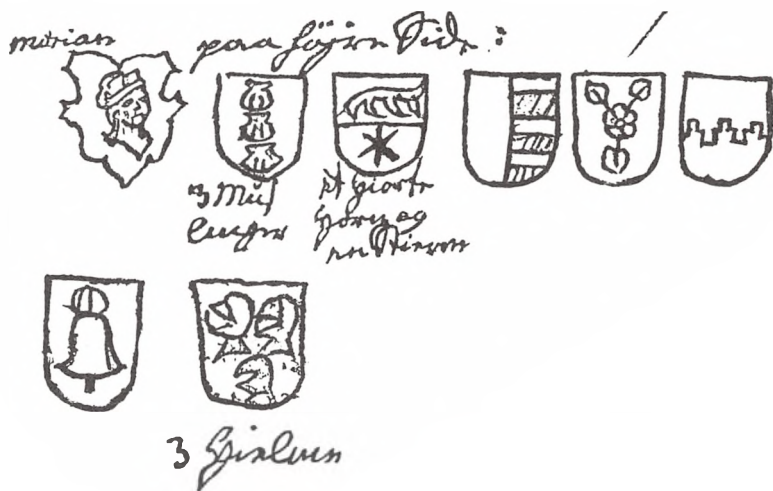 morian paa höjre Side:
3 Mus
linger
et Hiorte
Horn og
en Stierne
3 Hielme